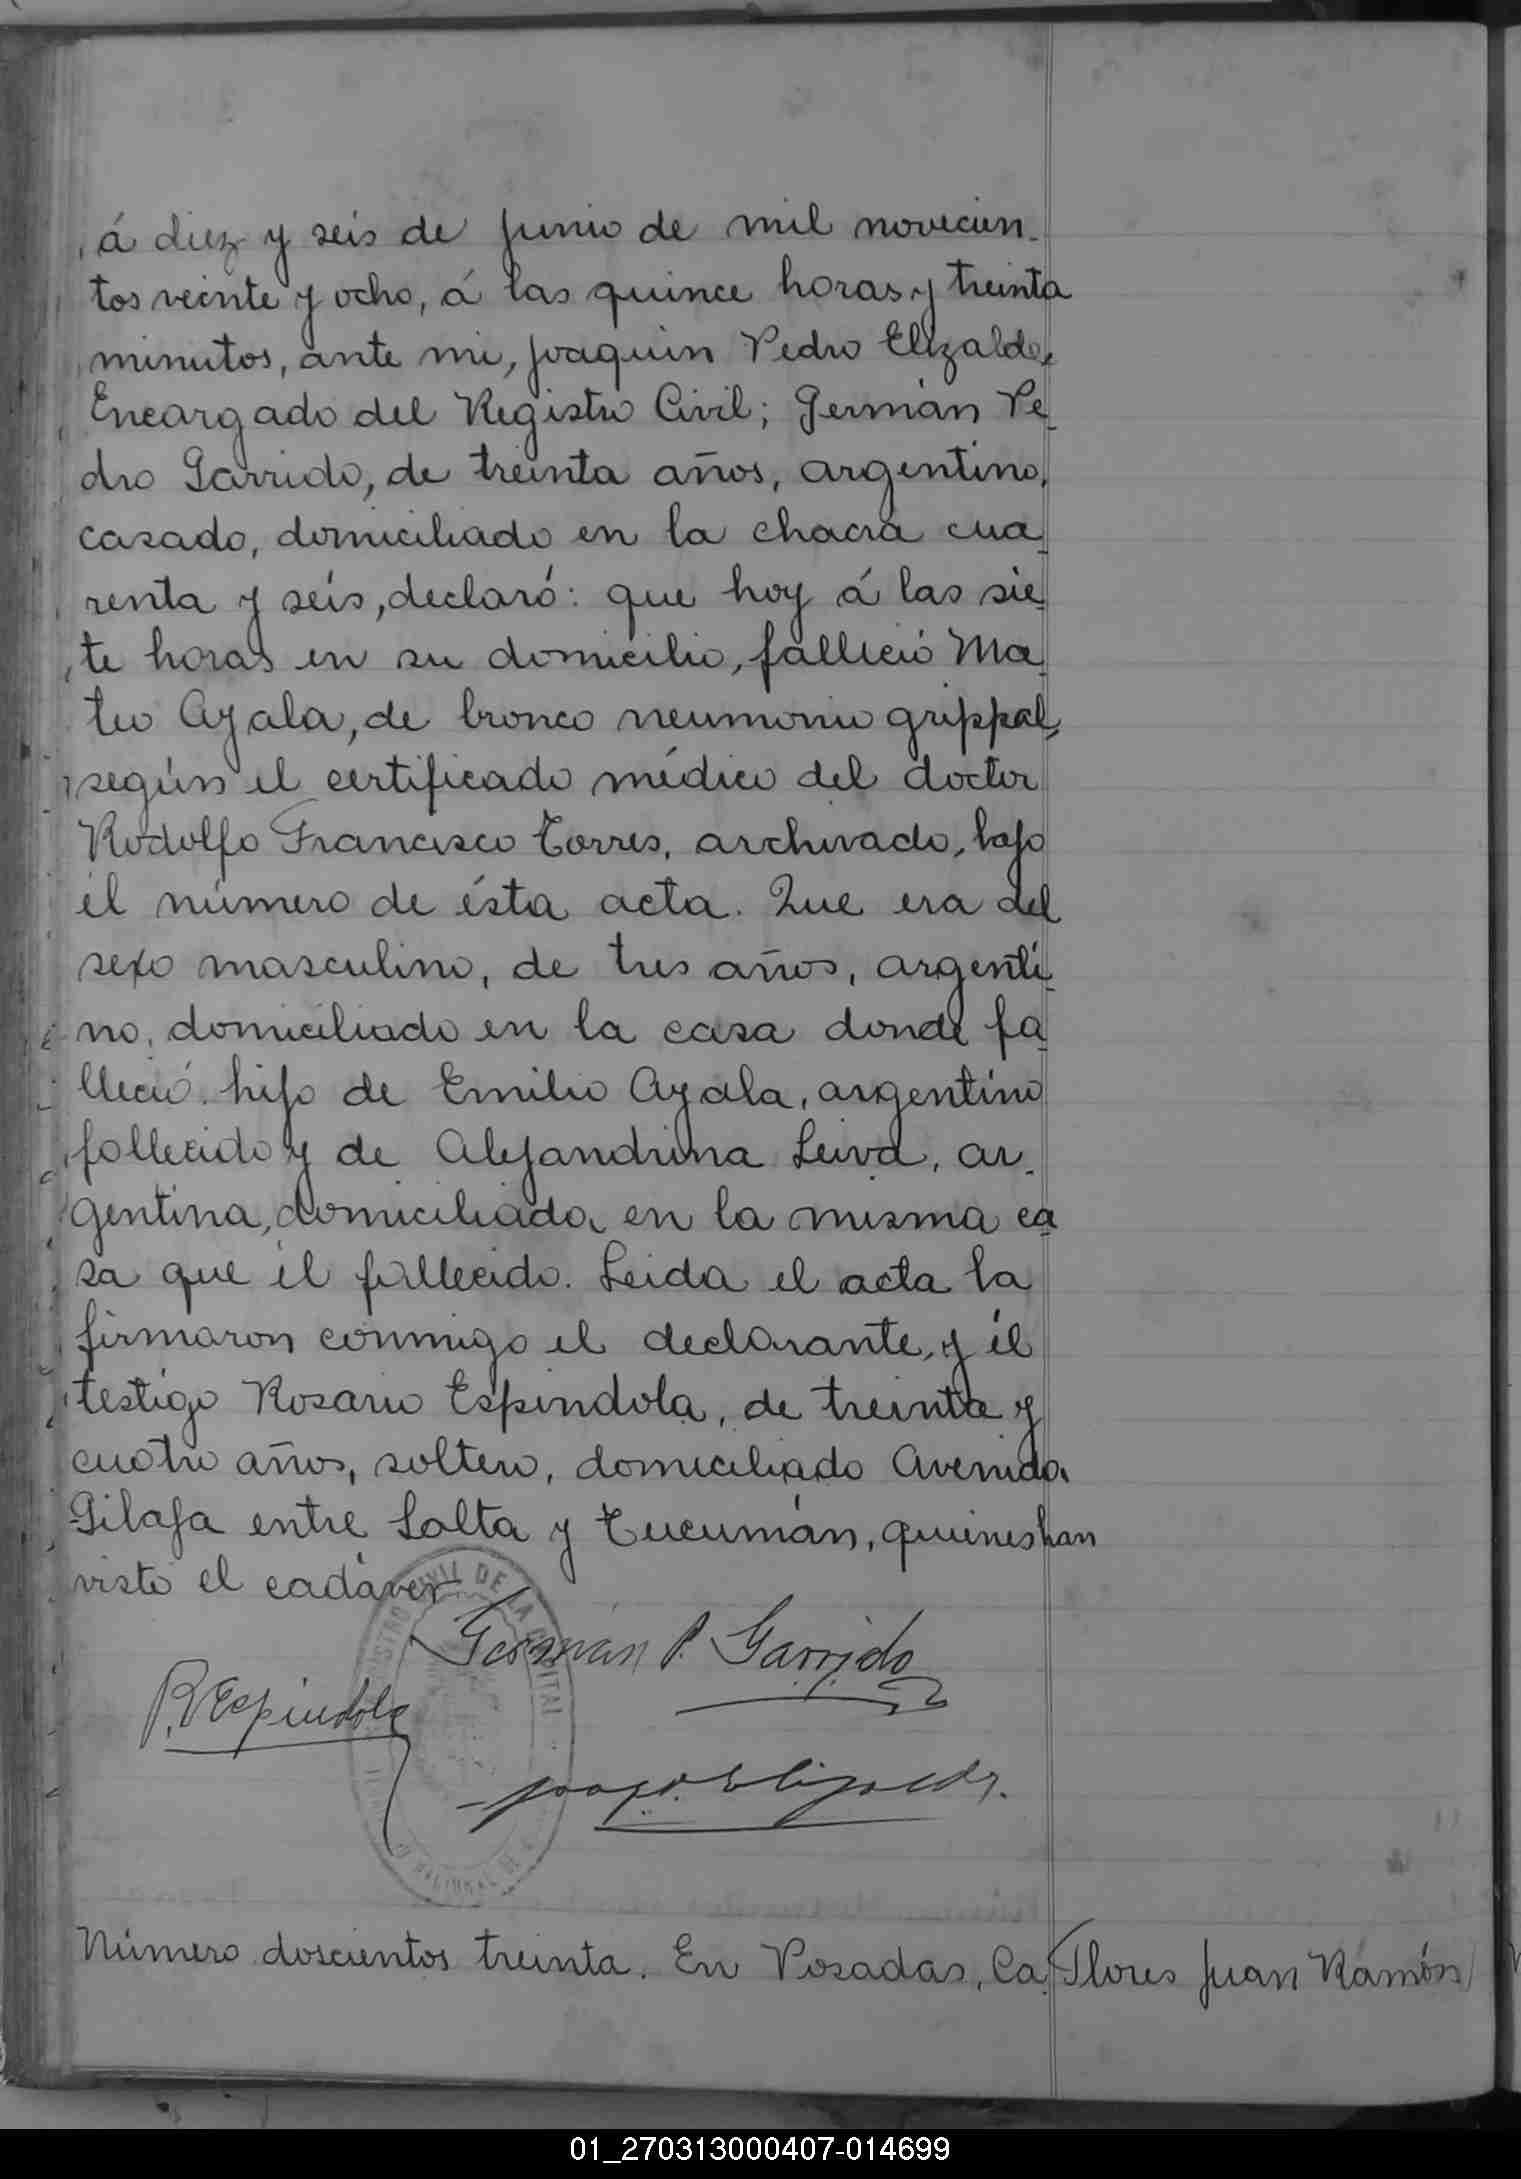 á diez y seis de Junio de mil novecien-
tos veinte y ocho, á las quince horas y treinta
minutos, ante mi, Joaquin Pedro Elizalde,
Encargado del Registro Civil; Germán Pe-
dro Garrido, de treinta años, argentino,
casado, domiciliado en la chacra cua-
renta y seis, declaró: que hoy á las sie-
te horas en su domicilio, falleció Ma-
teo Ayala, de bronco neumonio grippal,
según el certificado médico del doctor
Rodolfo Francisco Torres, archivado, bajo
el número de ésta acta. Que era del
sexo masculino, de tres años, argenti-
no, domiciliado en la casa donde fa-
lleció, hijo de Emilio Ayala, argentino
fallecido y de Alejandrina Leiva, ar-
gentina, domiciliada en la misma ca-
sa que él fallecido. Leida el acta la
firmaron conmigo el declarante, y él
testigo Rosario Espindola, de treinta y
cuatro años, soltero, domiciliado Avenida
entre Salta y Tucumán, quienes han
visto el cadáver
REGISTRO CIVIL DE LA CAPITAL
Germán P. Garrido
R. Espindola
Joaq. P. Elizalde.
Número doscientos treinta. En Posadas, Ca-
Flores Juan Ramón
01_270313000407-014699